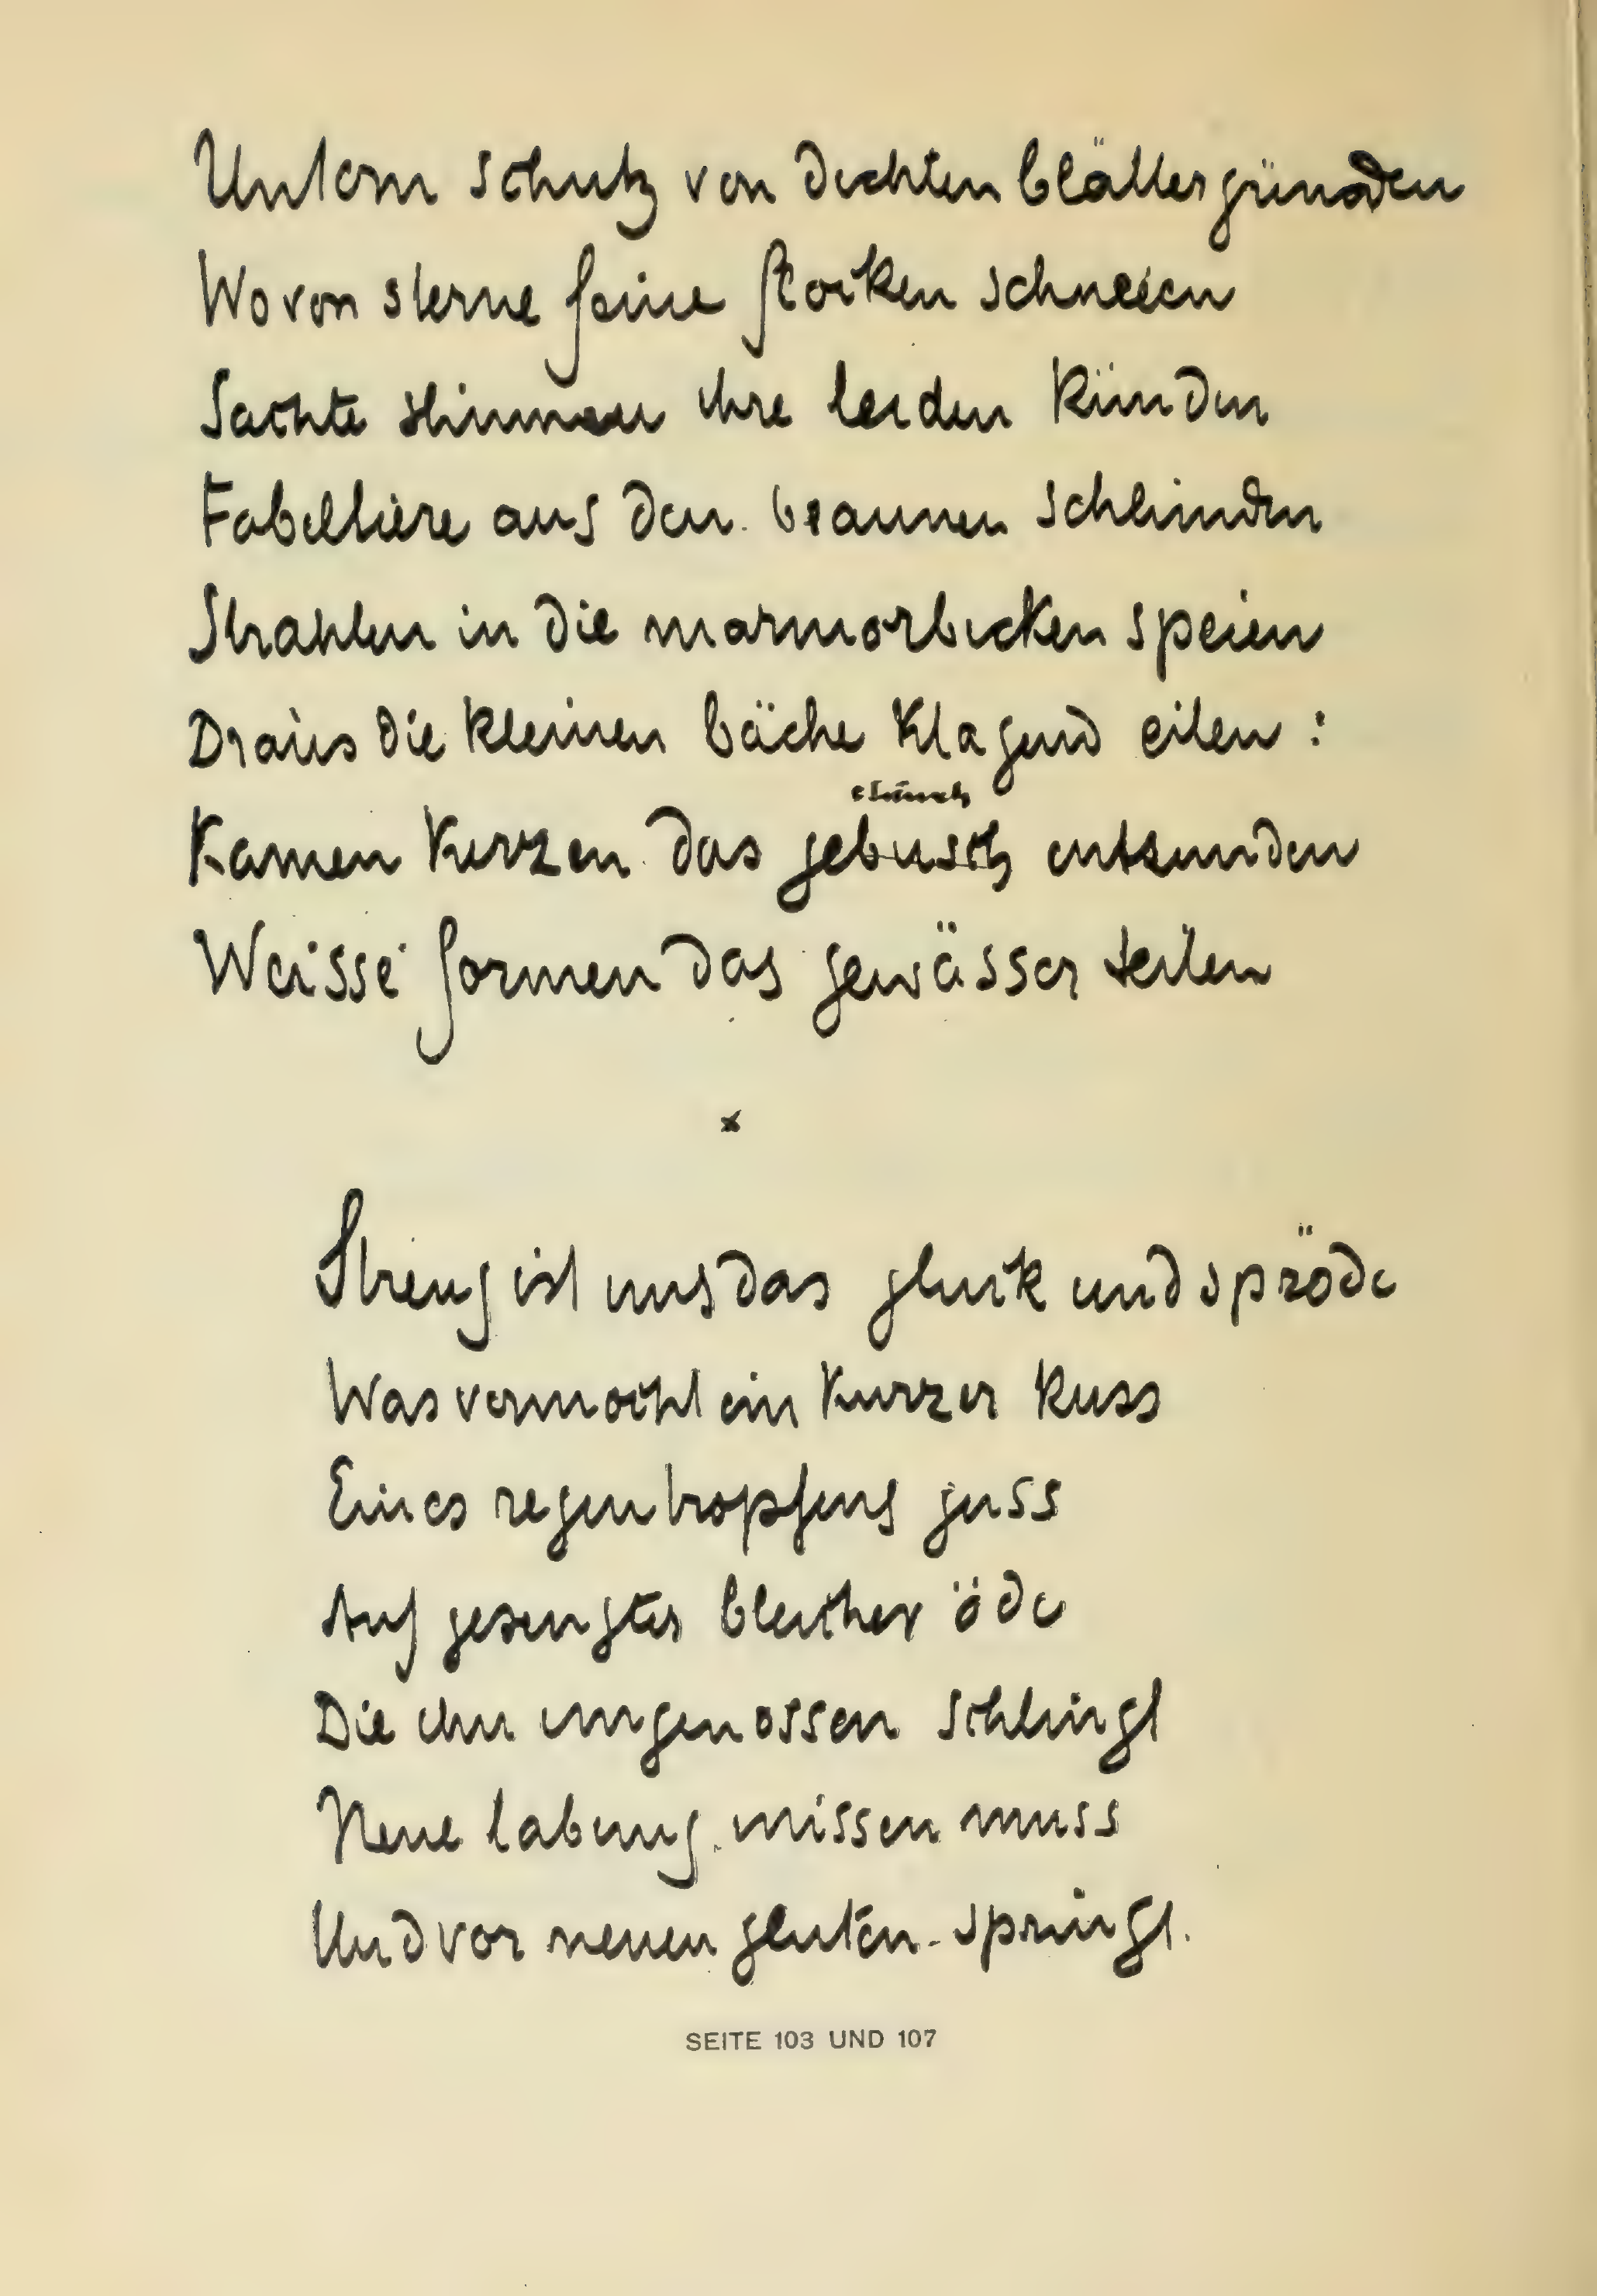 Unterm schutz von dichten blättergründen
Wo von sterne feine flocken schneien
Sachte stimmen ihre leiden künden
Fabeltiere aus den braunen schlünden
Strahlen in die marmorbecken speien
Draus die kleinen bäche klagend eilen:
Kamen kerzen das gebusch entzunden
Weisse formen das gewässer teilen
*
Streng ist uns das gluck und spröde
Was vermocht ein kurzer kuss
Eines regentropfens guss
Auf gesengter bleicher öde
Die ihn ungenossen schlingt
Neue labung missen muss
Und vor neuen gluten springt.
SEITE 103 UND 107